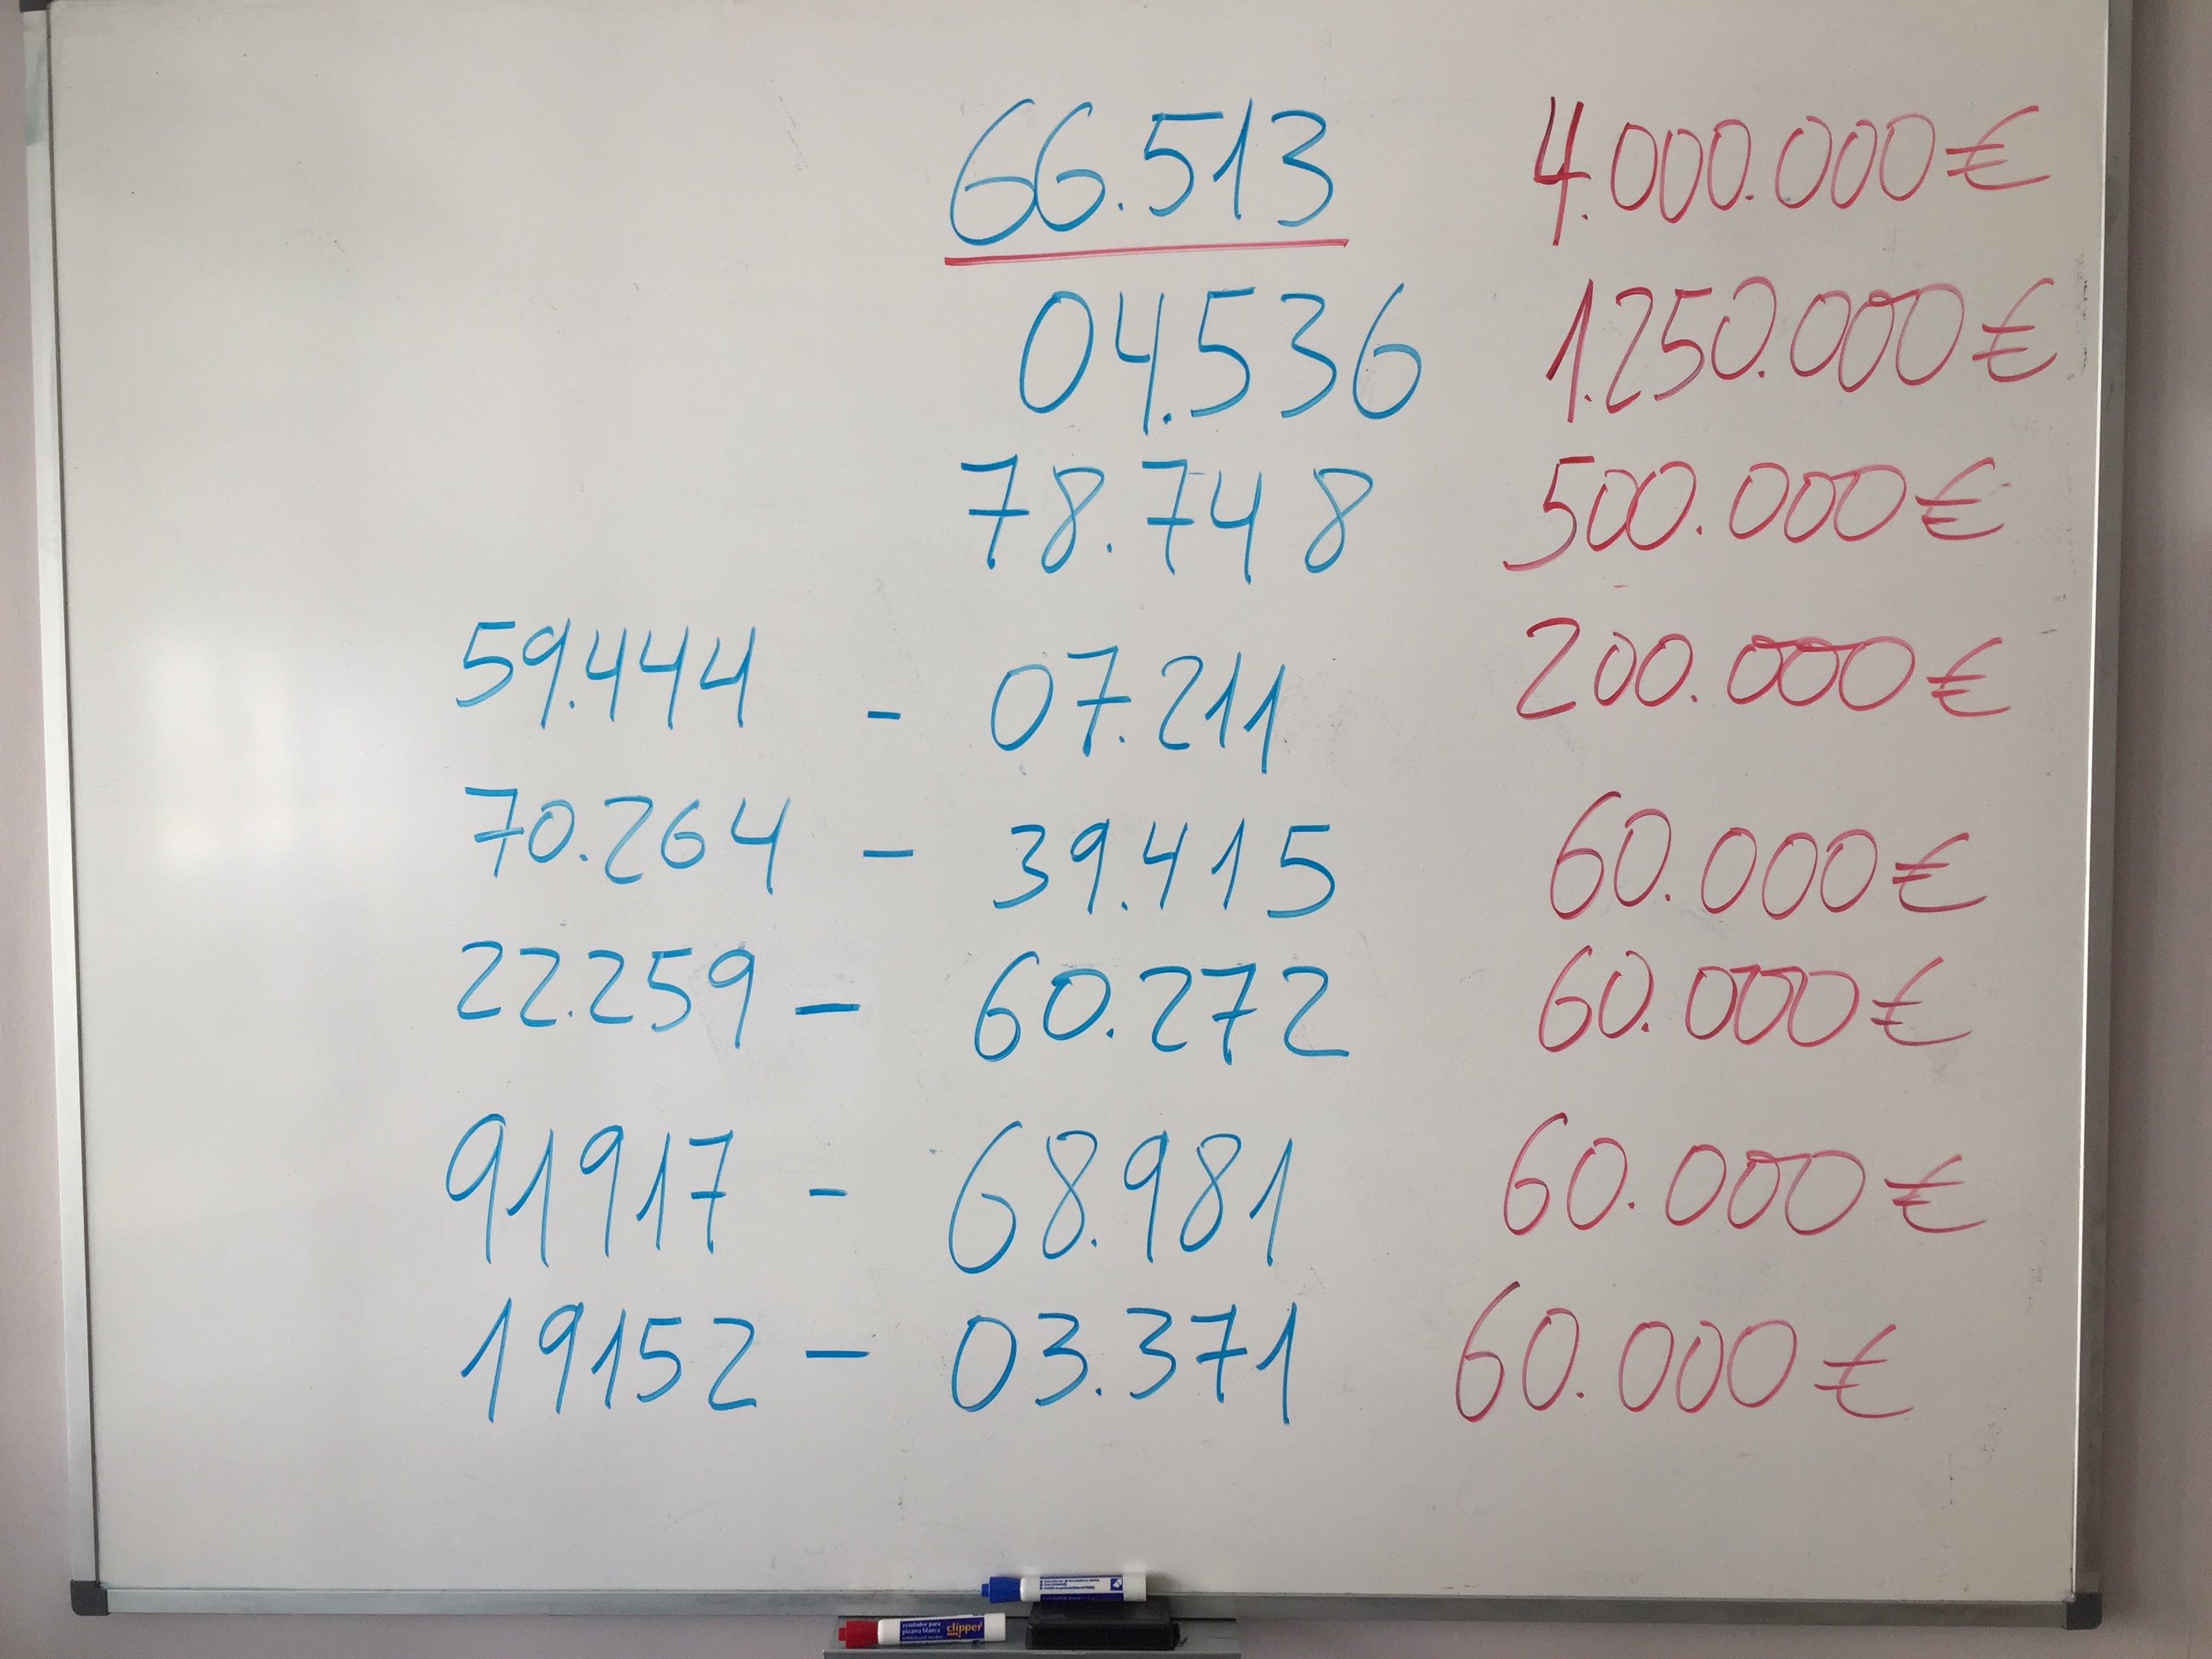 66.513 4.000.000€
04.536 1.250.000€
78.748 500.000€
59.444 - 07.211 200.000€
70.264 - 39.415 60.000€
22.259 - 60.272 60.000€
91917 - 68.981 60.000€
19152 - 03.371 60.000€
rotulador para
pizarra blanca
whiteboard marker
clipper